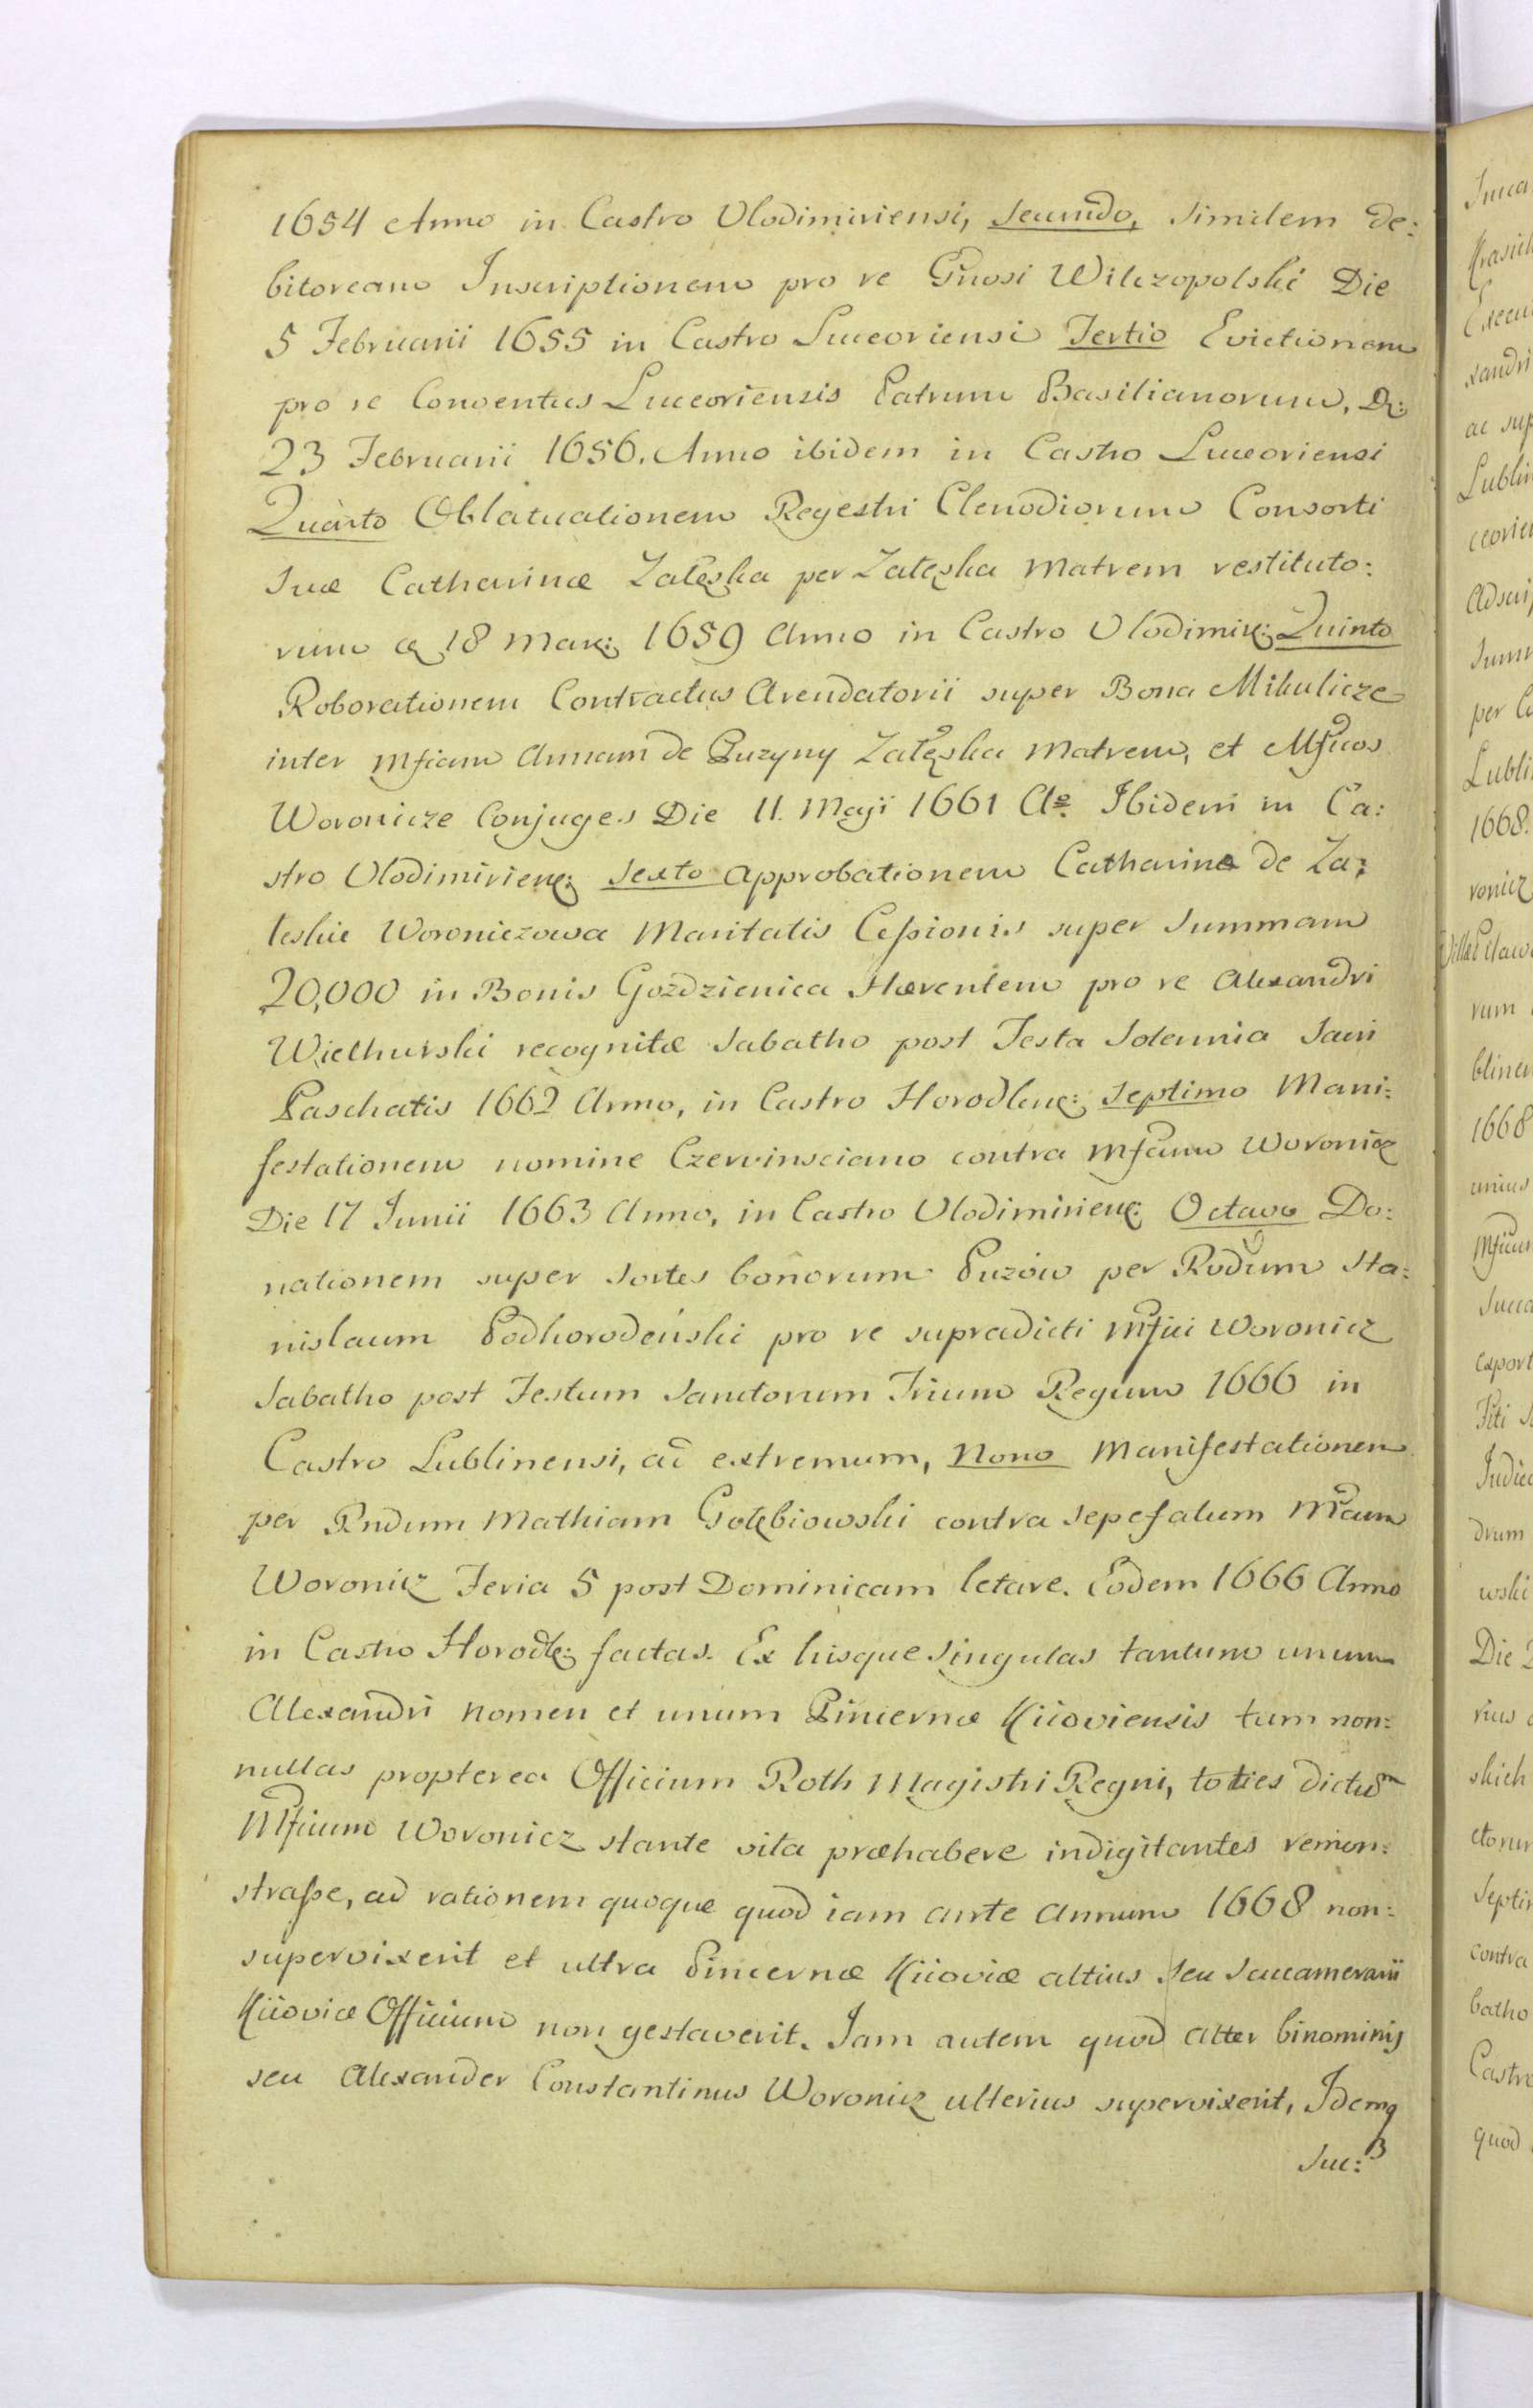 1654 Anno in Castro Vlodimiriensi, secundo, Similem de:
bitoream Inscriptionem pro re Gnosi Wilczopolski Die
5 Februarii 1655 in Castro Luceoriensi Tertio Evictionem
pro re Conventus Luceoriensis Patrum Basilianorum, D:
23 Februarii 1656. Anno ibidem in Castro Luceoriensi
Quarto Oblatuationem Regestri Clenodiorum Consorti
suæ Catharinæ Załęska per Załęska Matrem restituto:
rum 18 Mar: 1659 Anno in Castro Vlodimir: Quinto
Roborationem Contractus Arendatorii super Bona Mikulicze
inter Mficam Annam de Puzyny Załęska Matrem, et Mficos
Woronicze Conjuges Die 11. Maji 1661 Ao. Ibidem in Ca:
stro Vlodimirien: Sexto Approbationem Catharina de Za:
leskie Woroniczowa Maritalis Cessionis super Summam
20,000 in Bonis Gozdzienica Hærentem pro re Alexandri
Wielhurski recognitæ Sabatho post Festa Solennia Sacri
Paschatis 1662 Anno, in Castro Horodlen: Septimo Mani:
festationem nomine Czerwinsciano contra Mficum Woronicz
Die 17 Junii 1663 Anno, in Castro Vlodimirien: Octavo Do:
nationem super Sortes bonorum Puzow per Rndum Sta:
nislaum Podhorodeński pro re supradicti Mfici Woronicz
Sabatho post Festum Sanctorum Trium Regum 1666 in
Castro Lublinensi, ad extremum, Nono Manifestationem
per Rndum Mathiam Gołębiowski contra Sepefatum Mficum
Woronicz Feria 5 post Dominicam letare. Eodem 1666 Anno
in Castro Horodl: factas. Ex hisque Singulas tantum unum
Alexandri Nomen et unum Pincernæ Kiioviensis tum non:
nullas propterea Officium Roth Magistri Regni, toties dictum
Mficum Woronicz stante vita præhabere indigitantes remon:
strasse, ad rationem quoque quod iam ante Annum 1668 non:
supervixerit et ultra Pincernæ Kiioviæ altius seu Succamerarii
Kiioviæ Officium non gestaverit. Jam autem quod alter binominis
seu Alexander Constantinus Woronicz ulterius supervixerit, Idemq
Suc: